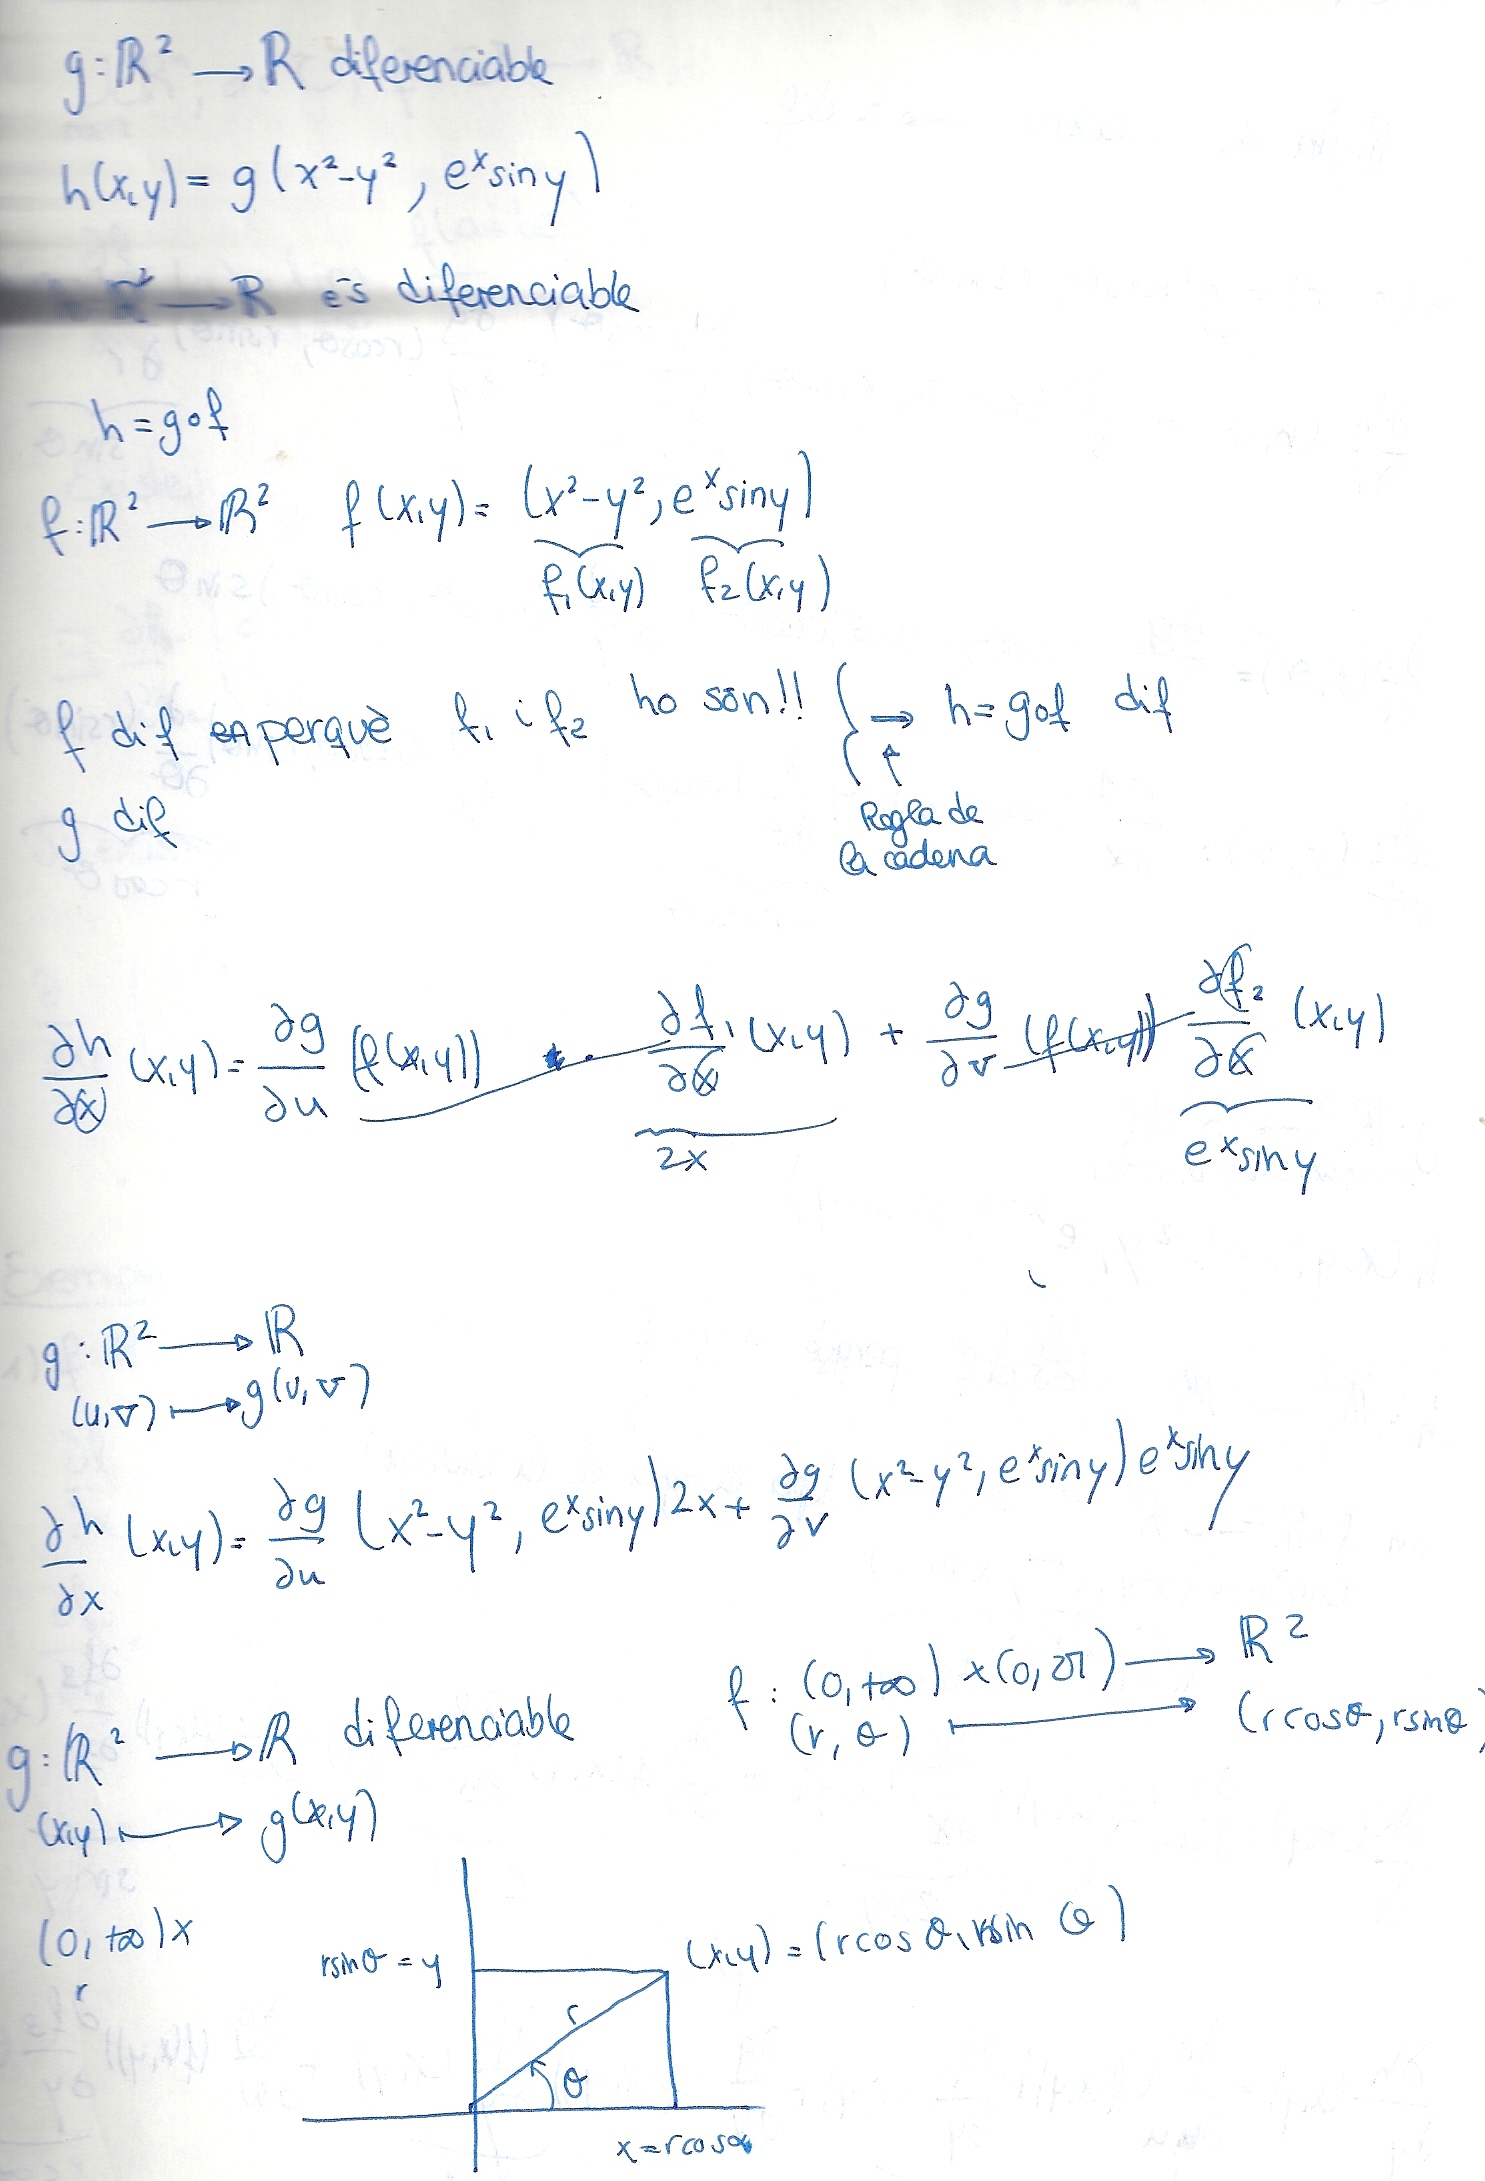 g: ℝ² → ℝ diferenciable
h(x,y) = g(x²-y², eˣsiny)
ℝ² → ℝ és diferenciable
h = g∘f
f: ℝ² → ℝ² f(x,y) = (x²-y², eˣsiny)
f₁(x,y) f₂(x,y)
f dif perquè f₁ i f₂ ho són!! } ⇒ h = g∘f dif
g dif
↑
Regla de
la cadena
∂h/∂x (x,y) = ∂g/∂u (f(x,y)) · ∂f₁/∂x (x,y) + ∂g/∂v (f(x,y)) ∂f₂/∂x (x,y)
2x eˣsiny
g: ℝ² → ℝ
(u,v) ↦ g(u,v)
∂h/∂x (x,y) = ∂g/∂u (x²-y², eˣsiny) 2x + ∂g/∂v (x²-y², eˣsiny) eˣsiny
f: (0,+∞) × (0,2π) → ℝ²
(r,θ) ↦ (rcosθ, rsinθ)
g: ℝ² → ℝ diferenciable
(x,y) ↦ g(x,y)
(0,+∞) x
r
rsinθ = y
(x,y) = (rcosθ, rsin θ)
r
θ
x = rcosα